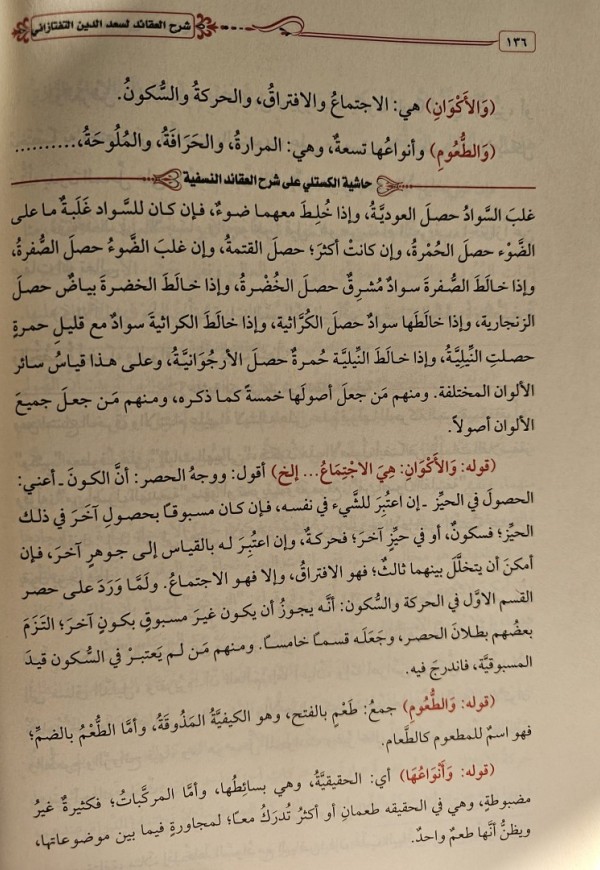 شرح العقائد لسعد الدين التفتازاني
١٣٦
(وَالأَكْوَانِ) هي: الاجتماعُ والافتراقُ، والحركةُ والسُّكونُ.
(وَالطُّعُومِ) وأنواعُها تسعةٌ، وهي: المرارةُ، والحَرَافَةُ، والمُلُوحَةُ،..........
حاشية الكستلي على شرح العقائد النسفية
غلبَ السَّوادُ حصلَ العوديَّةُ، وإذا خُلِطَ معهما ضوءٌ، فإن كان للسَّواد غَلَبةٌ ما على
الضَّوْء حصلَ الحُمْرةُ، وإن كانتْ أكثرَ؛ حصلَ القتمةُ، وإن غلبَ الضَّوءُ حصلَ الصُّفرةُ،
وإذا خالطَ الصُّفرةَ سوادٌ مُشرِقٌ حصلَ الخُضْرةُ، وإذا خالطَ الخضرةَ بياضٌ حصلَ
الزنجارية، وإذا خالطَها سوادٌ حصلَ الكُرَّاثية، وإذا خالطَ الكراثيةَ سوادٌ مع قليلِ حمرةٍ
حصلتِ النِّيلِيَّةُ، وإذا خالطَ النِّيليَّةَ حُمرةٌ حصلَ الأرجُوَانيَّةُ، وعلى هذا قياسُ سائر
الألوان المختلفة. ومنهم مَن جعلَ أصولَها خمسةً كما ذكره، ومنهم مَن جعلَ جميعَ
الألوان أصولاً.
(قوله: وَالأَكْوَانِ: هِيَ الاجْتِمَاعُ... إلخ) أقول: ووجهُ الحصر: أنَّ الكونَ ـ أعني:
الحصولَ في الحيِّز ـ إن اعتُبِرَ للشَّيء في نفسه، فإن كان مسبوقاً بحصولِ آخَرَ في ذلك
الحيِّز؛ فسكونٌ، أو في حيِّزٍ آخرَ؛ فحركةٌ، وإن اعتُبِرَ له بالقياس إلى جوهرٍ آخرَ، فإن
أمكنَ أن يتخلَّلَ بينهما ثالثٌ؛ فهو الافتراقُ، وإلا فهو الاجتماعُ. ولَمَّا وَرَدَ على حصر
القسم الأوَّل في الحركة والسُّكون: أنَّه يجوزُ أن يكون غيرَ مسبوقٍ بكونٍ آخرَ؛ التزَمَ
بعضُهم بطلانَ الحصر، وجَعَلَه قسماً خامساً. ومنهم مَن لم يَعتبرْ في السُّكون قيدَ
المسبوقيَّة، فاندرجَ فيه.
(قوله: وَالطُّعُومِ) جمعُ: طَعْمٍ بالفتح، وهو الكيفيَّةُ المَذُوقَةُ، وأمَّا الطُّعْمُ بالضمِّ؛
فهو اسمٌ للمطعوم كالطَّعام.
(قوله: وَأَنْوَاعُهَا) أي: الحقيقيَّةُ، وهي بسائِطُها، وأمَّا المركَّباتُ؛ فكثيرةٌ غيرُ
مضبوطةٍ، وهي في الحقيقه طعمان أو أكثرُ تُدرَكُ معاً؛ لمجاورةٍ فيما بين موضوعاتها،
ويظنُّ أنَّها طعمٌ واحدٌ.